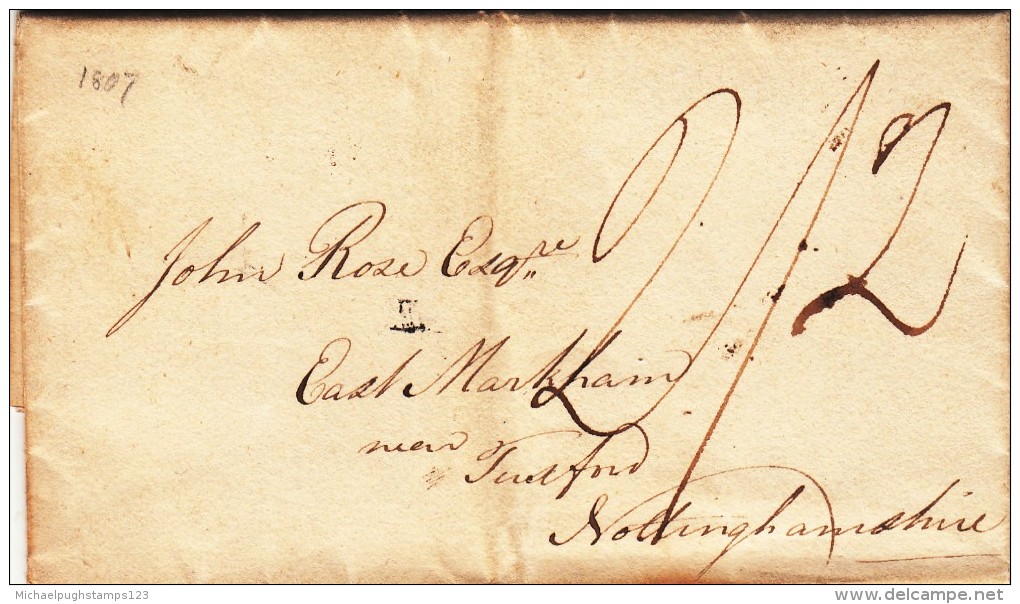 1807
2/2
John Rose Esqre
East Markham
near Tuxford
Nottinghamshire
Michaelpughstamps123
delcampe.net